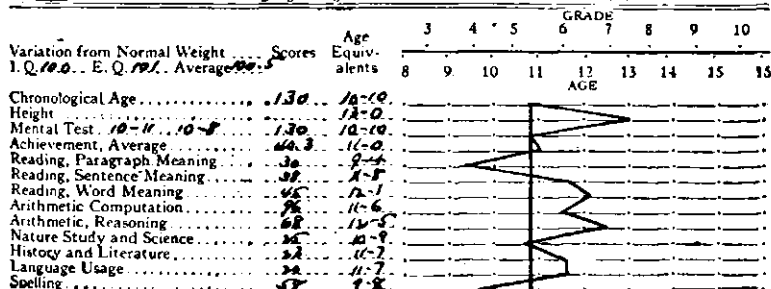 GRADE
3 4 5 6 7 8 9 10
Variation from Normal Weight .... Scores Age Equiv-alents
I. Q. 100 .. E. Q. 101 .. Average 100.5
8 9 10 11 12 13 14 15 16
AGE
Chronological Age .... 130 10-10
Height ....
Mental Test 10-11 10-8 130 10-10
Achievement, Average .... 44.3 11-0
Reading, Paragraph Meaning .... 30 9-4
Reading, Sentence Meaning .... 38
Reading, Word Meaning .... 45 12-1
Arithmetic Computation .... 96 11-6
Arithmetic, Reasoning .... 68 12-5
Nature Study and Science .... 10-9
History and Literature .... 11-7
Language Usage .... 11-7
Spelling .... 9-8